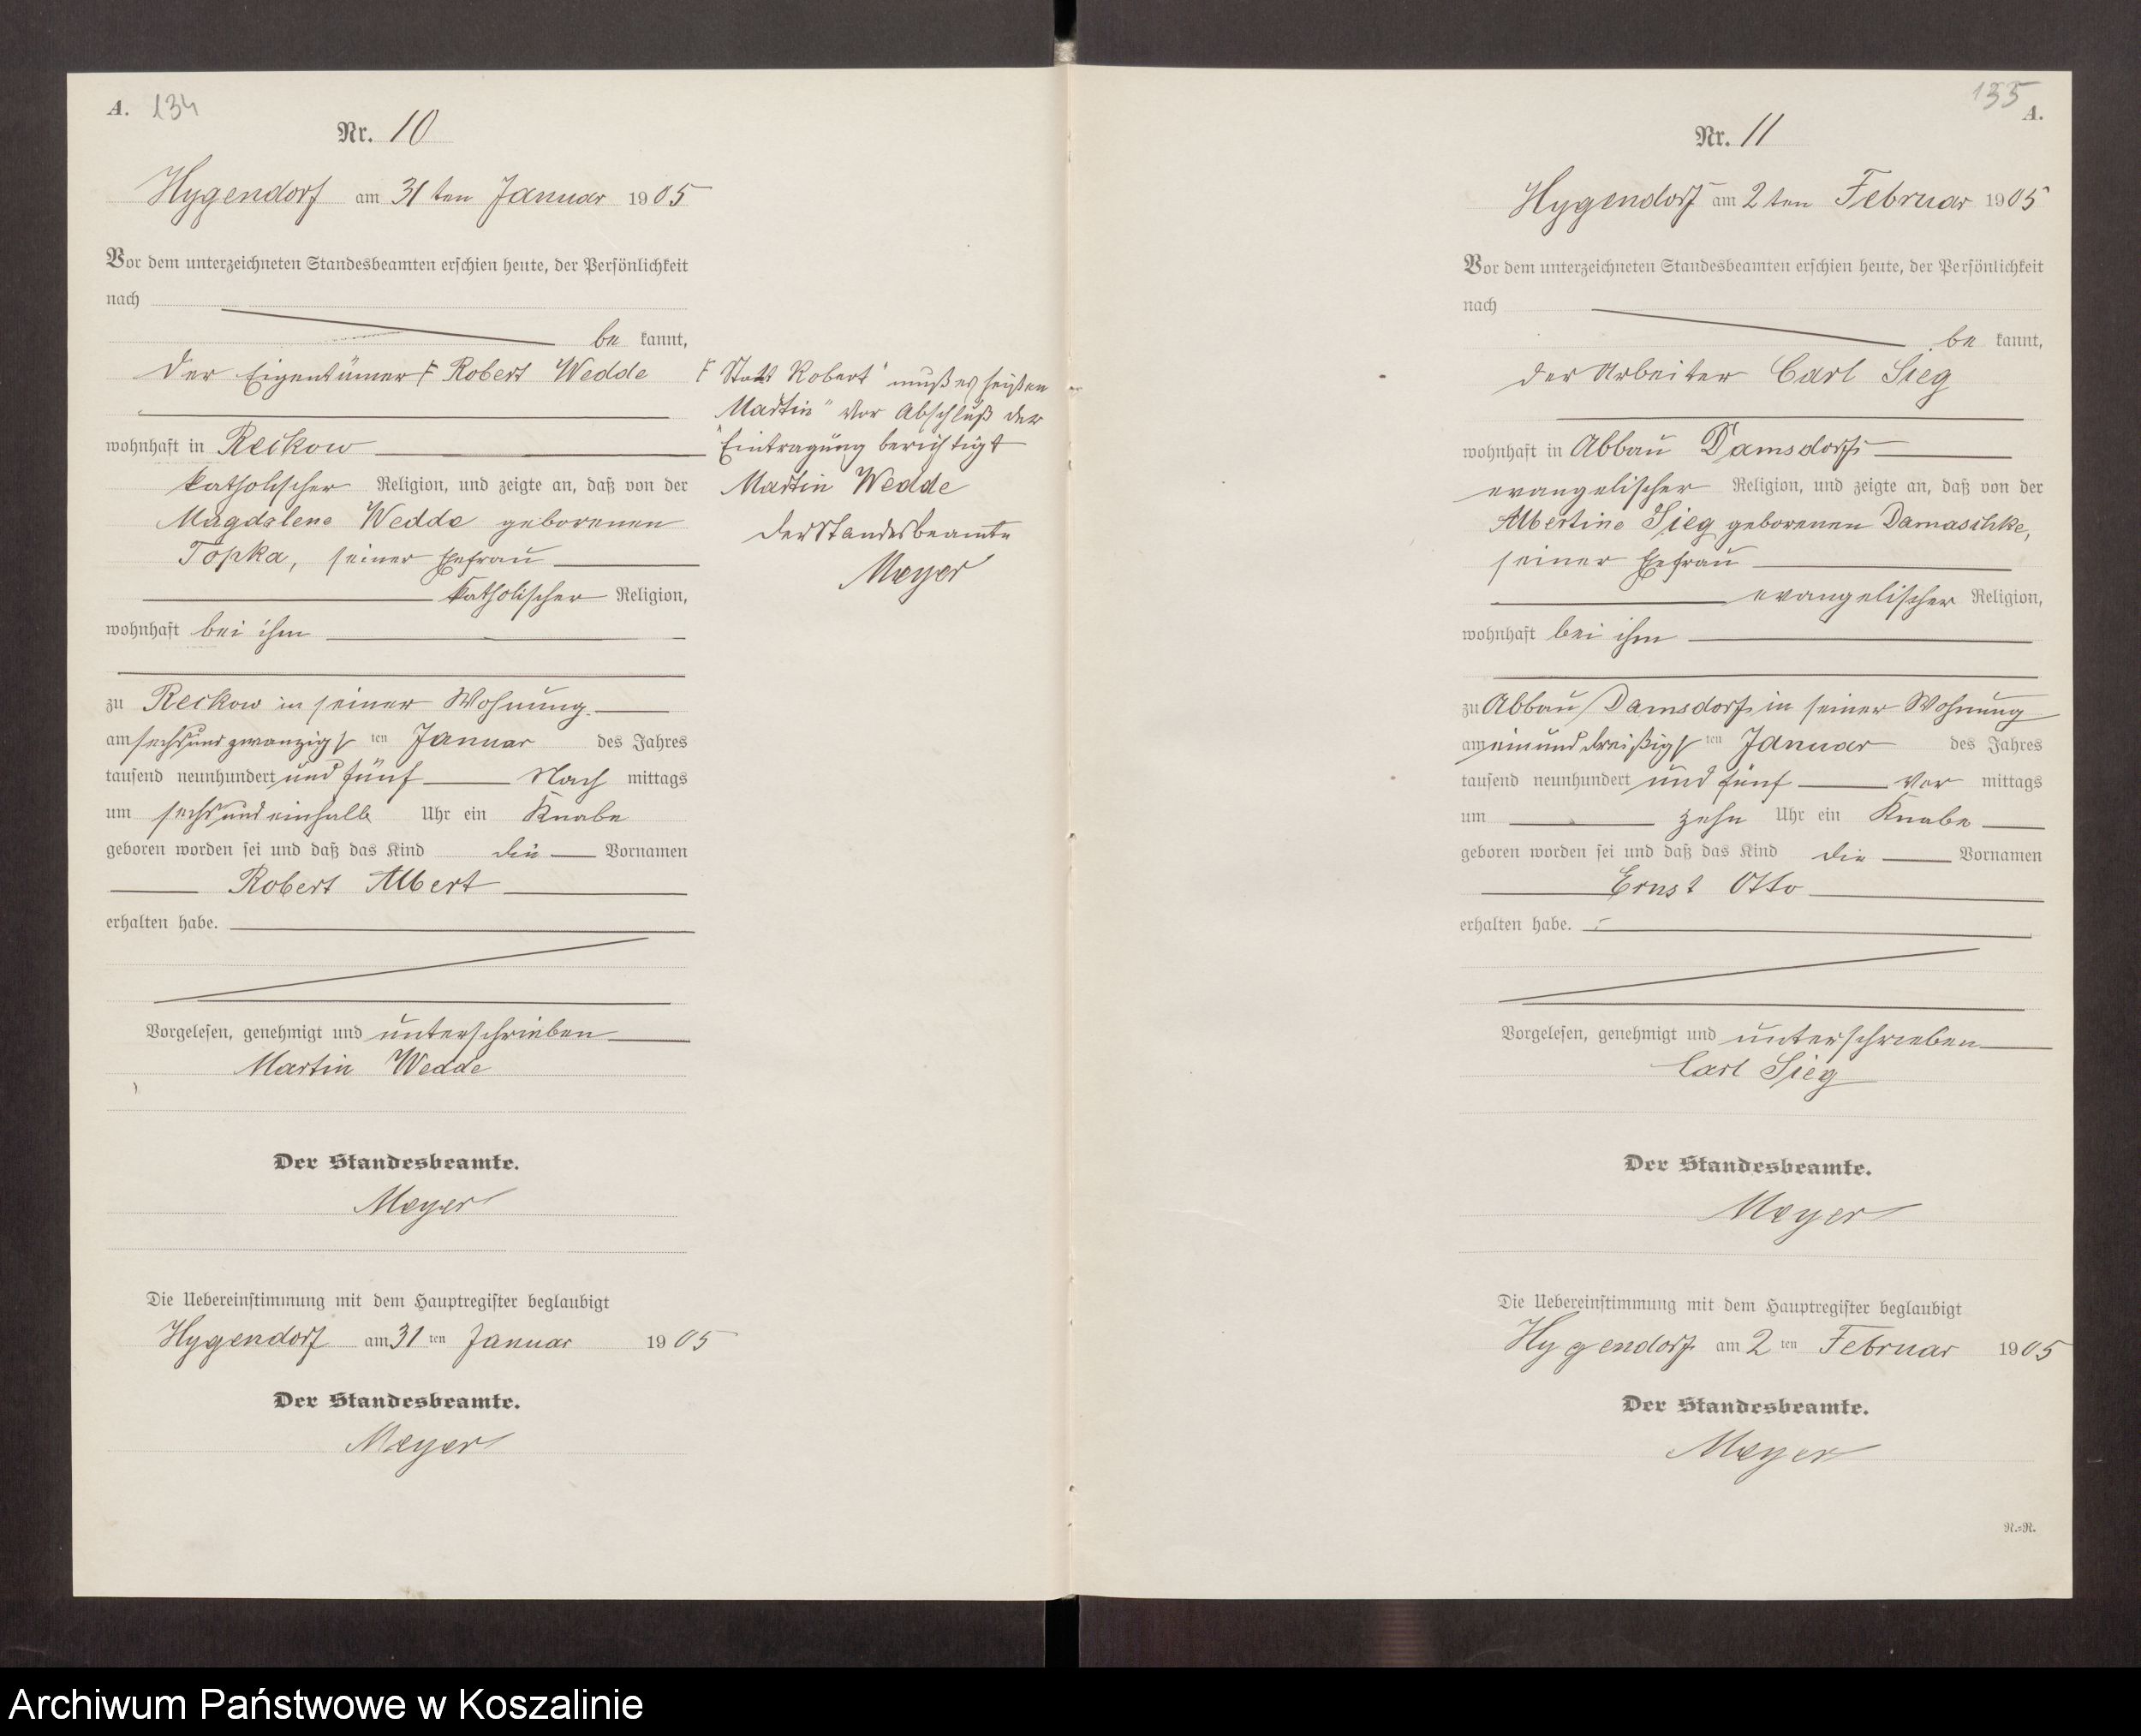 A. 134
Nr. 10
Hygendorf am 31ten Januar 1905
Vor dem unterzeichneten Standesbeamten erschien heute, der Persönlichkeit
nach
be kannt,
der Eigentümer F Robert Wedde
wohnhaft in Reckow
katholischer Religion, und zeigte an, daß von der
Magdalene Wedde geborenen
Topka, seiner Ehefrau
katholischer Religion,
wohnhaft bei ihm
zu Reckow in seiner Wohnung
am sechsundzwanzigs ten Januar des Jahres
tausend neunhundert und fünf Nach mittags
um sechsundeinhalb Uhr ein Knabe
geboren worden sei und daß das Kind die Vornamen
Robert Albert
erhalten habe.
Vorgelesen, genehmigt und unterschrieben
Martin Wedde
Der Standesbeamte.
Meyer
Die Uebereinstimmung mit dem Hauptregister beglaubigt
Hygendorf am 31 ten Januar 1905
Der Standesbeamte.
Meyer
F Statt Robert" muß es heißen
Martin" vor Abschluß der
Eintragung berichtigt
Martin Wedde
Der Standesbeamte
Meyer
135
A.
Nr. 11
Hygendorf am 2ten Februar 1905
Vor dem unterzeichneten Standesbeamten erschien heute, der Persönlichkeit
nach
be kannt,
der Arbeiter Carl Sieg
wohnhaft in Abbau Damsdorf
evangelischer Religion, und zeigte an, daß von der
Albertine Sieg geborenen Damaschke,
seiner Ehefrau
evangelischer Religion,
wohnhaft bei ihm
zu Abbau Damsdorf in seiner Wohnung
am einunddreißigs ten Januar des Jahres
tausend neunhundert und fünf Vor mittags
um zehn Uhr ein Knabe
geboren worden sei und daß das Kind die Vornamen
Ernst Otto
erhalten habe.
Vorgelesen, genehmigt und unterschrieben
Carl Sieg
Der Standesbeamte.
Meyer
Die Uebereinstimmung mit dem Hauptregister beglaubigt
Hygendorf am 2 ten Februar 1905
Der Standesbeamte.
Meyer
N.=N.
Archiwum Państwowe w Koszalinie